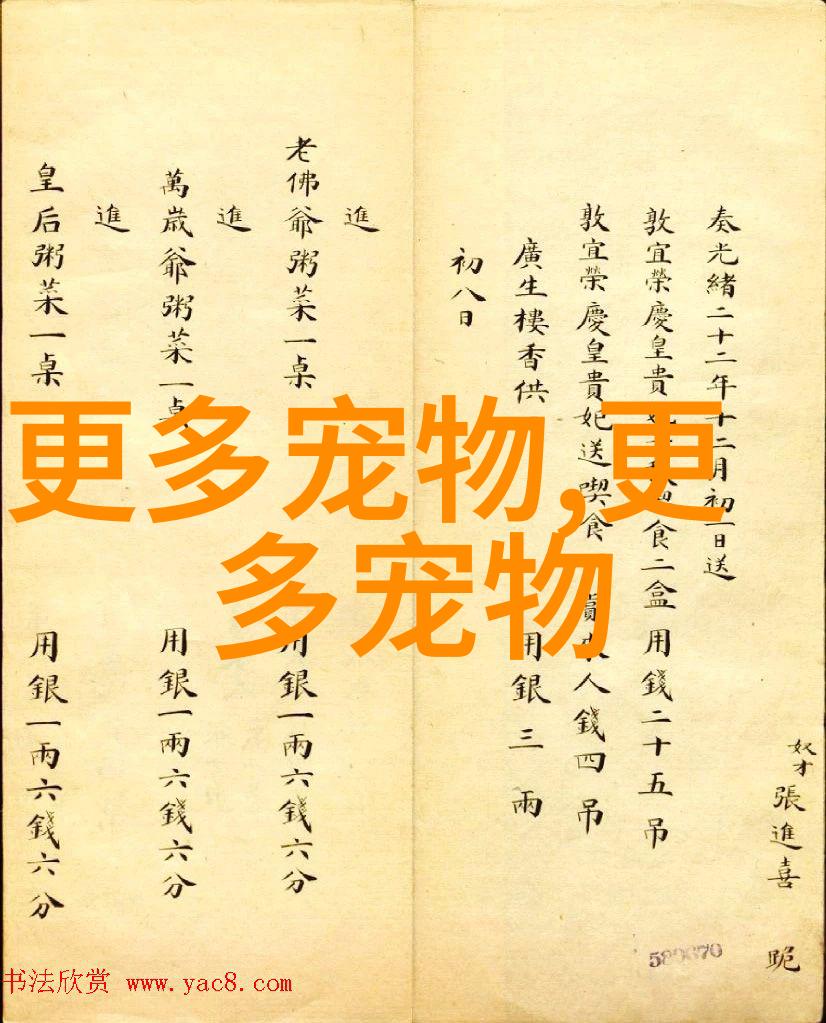 奴才張進喜 跪
奏光緒二十二年十二月初一日送
敦宜榮慶皇貴妃食二盒用錢二十五吊
敦宜榮慶皇貴妃送喫食 人錢四吊
廣生樓香供 用銀三兩
初八日
進
老佛爺粥菜一桌 用銀一兩六錢六分
進
萬歲爺粥菜一桌 用銀一兩六錢六分
進
皇后粥菜一桌 用銀一兩六錢六分
更多宠物,更
多宠物
书法欣赏 www.yac8.com